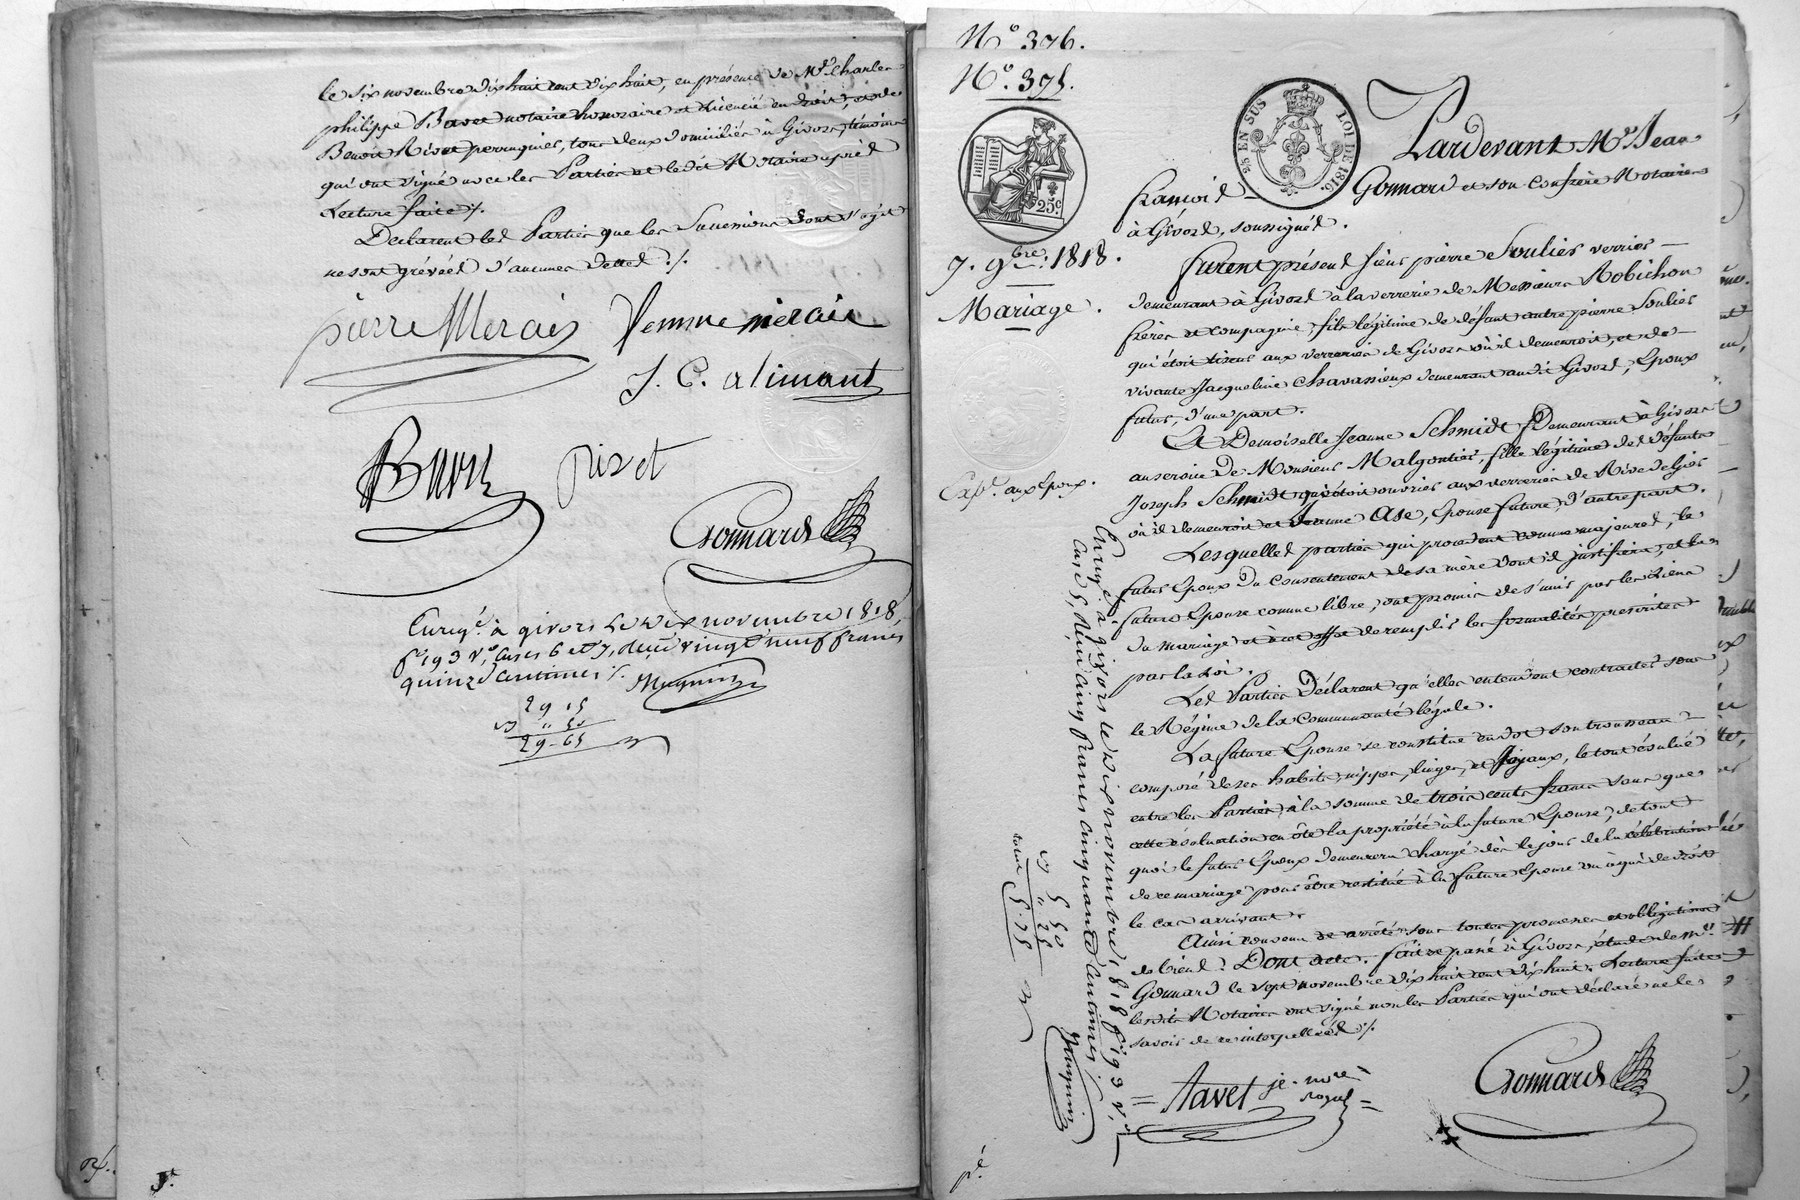 le six novembre dix huit cent dix huit, en présence de Mre Charles
philippe Bavet notaire honoraire et Licencié en droit, et de
Benoit Rivet perruquier, tous deux domiciliés à Givors, témoins
qui ont signé avec les Parties et ledit Notaire après
Lecture faite ./.
Déclarent les Parties que les Successions dont s'agit
ne sont grévées d'aucunes dettes ./.
pierre Merais femme merais
J. C. alimant
Rivet
Gonnard
Enregé. à givors le dix novembre 1818,
fo 193 vo, cases 6 et 7, reçu vingt neuf francs
quinze centimes ./.
29 15
" 50
29-65
No 376.
No 375.
25 EN SUS
LOI DE 1816
25c
Pardevant Me Jean
françois Gonnard et son confrère Notaires
à Givors, soussignés.
7. 9bre. 1818.
Mariage.
furent présens sieur pierre Soulier verrier
demeurant à Givors à la verrerie de Messieurs Robichon
frères et compagnie, fils légitime de défunt autre pierre Soulier
qui étoit tiseur aux verreries de Givors où il demeuroit, et de
vivante Jacqueline Chavassieux demeurant audit Givors, Epoux
futur, d'une part.
Et Demoiselle Jeanne Schmidt Demeurant à Givors
au service de Monsieur Malgontier, fille légitime des défunts
Joseph Schmidt qui étoit ouvrier aux verreries de Rive de Gier
où il demeuroit et de Ase, Epouse future, d'autre part.
Expé. aux Epoux.
Lesquelles parties qui procèdent comme majeures, le
futur Epoux du consentement de sa mère dont il justifiera, et la
future Epouse comme libre, ont promis de s'unir par les liens
du mariage et à cet effet de remplir les formalités prescrites
par la Loi.
Les Parties Déclarent qu'elles entendent contracter sous
le Régime de la Communauté légale.
La future Epouse se constitue en dot son trousseau
composé de ses habits, nippes, linges, et Joyaux, le tout évalué
entre les Parties, à la somme de trois cents francs sans que
cette évaluation en ôte la propriété à la future Epouse, de tout
quoi le futur Epoux demeurera chargé dès le jour de la célébration
de ce mariage pour être restitué à la future Epouse ou à qui de droit
le cas arrivant.
Ainsi convenu et arrêté sous toutes promesses et obligations
de biens. Dont acte. fait et passé à Givors, étude de Me.
Gonnard le sept novembre dix huit cent dix huit. Lecture faite
lesdits Notaires ont signé non les Parties qui ont déclaré ne le
savoir de ce interpellées ./.
Enregé. à givors le dix novembre 1818 fo 193 vo,
case 5, reçu cinq francs cinquante centimes ./.
5 50
" 25
5.75
= Navet
Gonnard